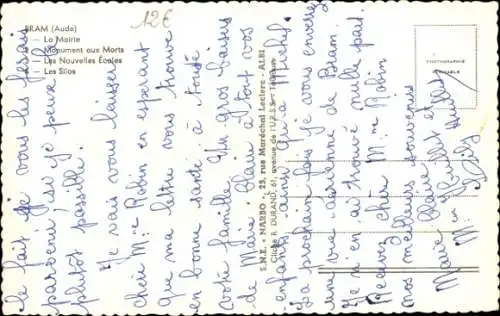 BRAM (Aude)
— La Mairie
— Monument aux Morts
— Les Nouvelles Écoles
— Les Silos
12€
S.N.E. « NARBO », 23, rue Maréchal Leclerc - ALBI
Cliché R. DURAND, 61, avenue de l'U.R.S.S. - Toulouse
PHOTOGRAPHIE VÉRITABLE
le fait. Je vous les ferais
parvenir si je peux le
plutôt possible.
Je vais vous laisser
chère Mme Robin en espérant
que ma lettre vous trouve
en bonne santé à toute
votre famille. Gros baisers
de Marie Claire à tout vos
enfants ainsi qu'à Michel.
La prochaine fois je vous enverrez
une vue aérienne de Bram.
Je n'en ai trouvé nulle part.
Recevez chère Mme Robin
nos meilleurs souvenirs
Marie Claire et